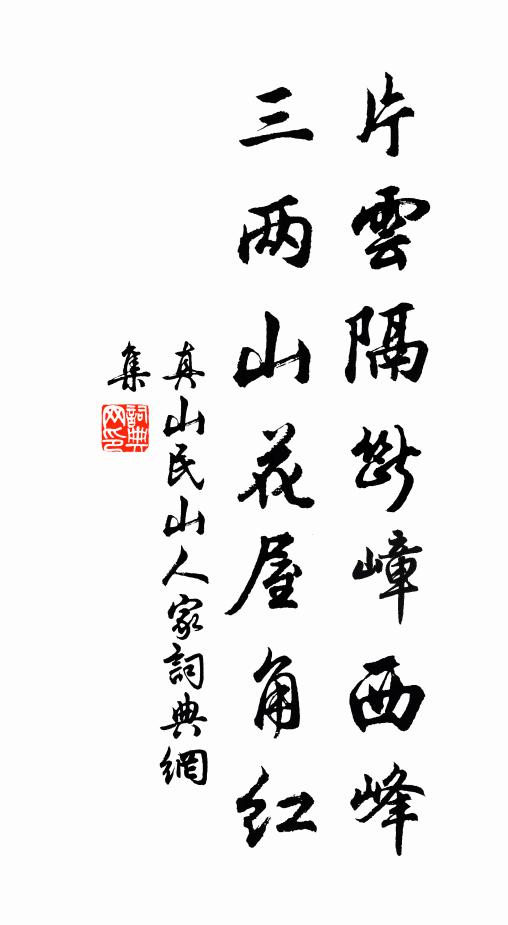 片雲隔斷嶂西峰
三两山花屋角紅
真山民山人家詞典網
集
詞典网印